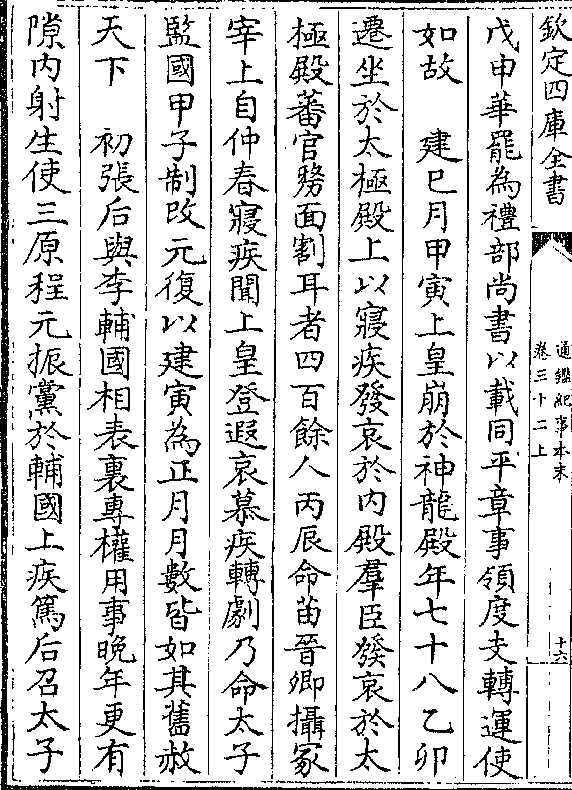 欽定四庫全書
通鑑紀事本末
卷三十二上
十六
戊申華罷為禮部尚書以載同平章事領度支轉運使
如故　建巳月甲寅上皇崩於神龍殿年七十八乙卯
遷坐於太極殿上以寢疾發哀於內殿羣臣發哀於太
極殿蕃官剺面割耳者四百餘人丙辰命苗晉卿攝冢
宰上自仲春寢疾聞上皇登遐哀慕疾轉劇乃命太子
監國甲子制改元復以建寅為正月月數皆如其舊赦
天下　初張后與李輔國相表裏專權用事晚年更有
隙內射生使三原程元振黨於輔國上疾篤后召太子